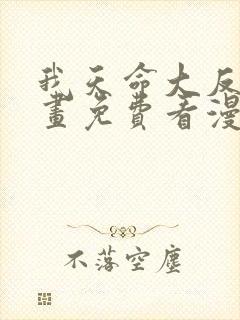 我天命大反
畫免費看漫
不落空塵